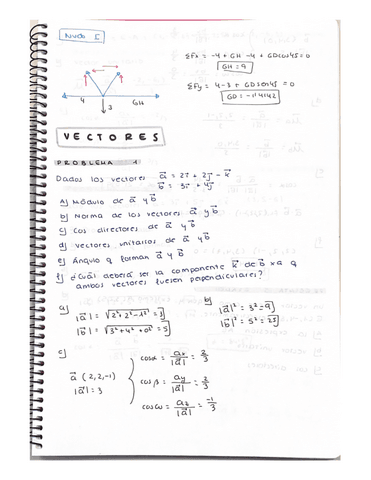 Nudo 5
ΣFx = -4 + GH -4 + GDcos45 = 0
GH = 9
ΣFy = 4-3 + GDsen45 = 0
GD = -1'4142
4
GH
3
VECTORES
PROBLEMA 1
Dados los vectores a⃗ = 2i⃗ + 2j⃗ - k⃗
b⃗ = 3i⃗ + 4j⃗
a) Módulo de a⃗ y b⃗
b) Norma de los vectores a⃗ y b⃗
c) Cos directores de a⃗ y b⃗
d) Vectores unitarios de a⃗ y b⃗
e) Ángulo q forman a⃗ y b⃗
f) ¿Cuál deberá ser la componente k⃗ de b⃗ xa q
ambos vectores fuesen perpendiculares?
a)
|a⃗| = √2²+2²-1² = 3
|b⃗| = √3²+4²+0² = 5
b)
|a⃗|² = 3² = 9
|b⃗|² = 5² = 25
c)
a⃗ (2,2,-1)
|a⃗| = 3
cosα = ax/|a⃗| = 2/3
cosβ = ay/|a⃗| = 2/3
cosω = az/|a⃗| = -1/3